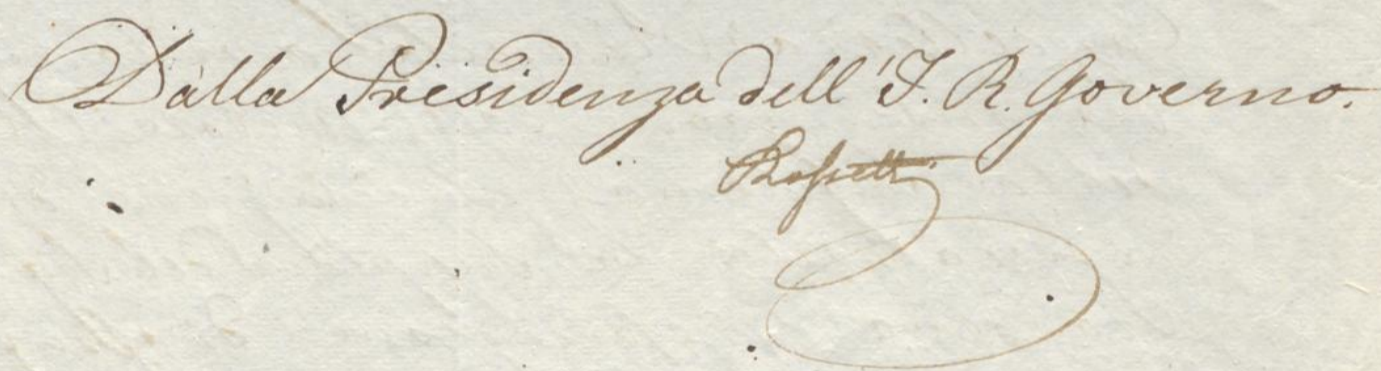 Dalla Presidenza dell'I. R. Governo.
Rossetti